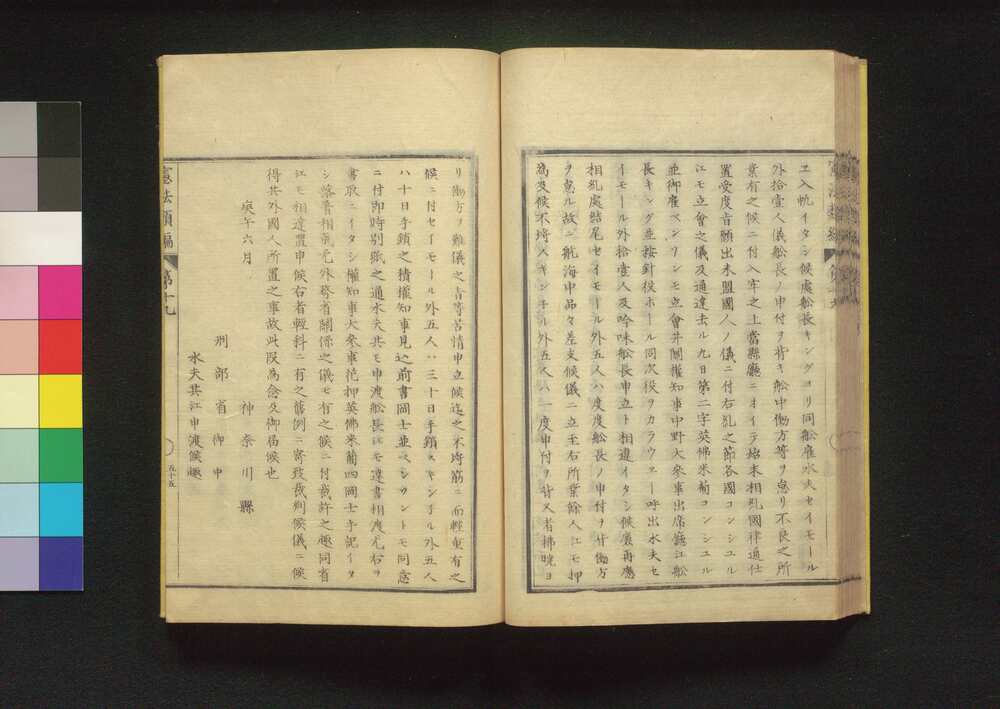 ヱ入帆イタシ候處舩長キングヨリ同舩雇水夫セイモール
外拾壹人儀舩長ノ申付ヲ背キ舩中働方等ヲ怠リ不良之所
業有之候ニ付入牢之上當縣廳ニオイテ始末相糺國律通仕
置受度旨願出未盟國人ノ儀ニ付右糺之節各國コンシユル
江モ立會之儀及通達去ル九日第二字英佛米葡コンシユル
並御雇ベンソンモ立會井關權知事中野大參事出席廳江舩
長キング並按針役ホール同次役ヲカラウェー呼出水夫セ
イモール外拾壹人及吟味舩長申立ト相違イタシ候廉再應
相糺處結尾セイモール外五人ハ度度舩長ノ申付ヲ背働方
ヲ怠ル故ニ航海中品々差支候儀ニ立至右所業餘人江モ押
為及候不埒スキンチル外五人ハ一度申付ヲ背又者拂曉ヨ
リ働方ヲ難儀之旨等苦情申立候迄之不埒筋ニ而輕重有之
候ニ付セイモール外五人ハ三十日手鎖スキンチル外五人
ハ十日手鎖之積權知事見込前書岡士並ベンソントモ同意
ニ付即時別紙之通水夫共モ申渡舩長江モ達書相渡尤右ヲ
書取ニイタシ權知事大參事花押英佛米葡四岡士手記イタ
シ落着相成尤外務省關係之儀モ有之候ニ付裁許之趣同省
江モ相達置申候右者輕科ニ有之舊例ニ寄致裁判候儀ニ候
得共外國人所置之事故此段為念久御屆候也
庚午六月
神奈川縣
刑部省御中
水夫共江申渡候趣
憲法類編
第十九
五十五